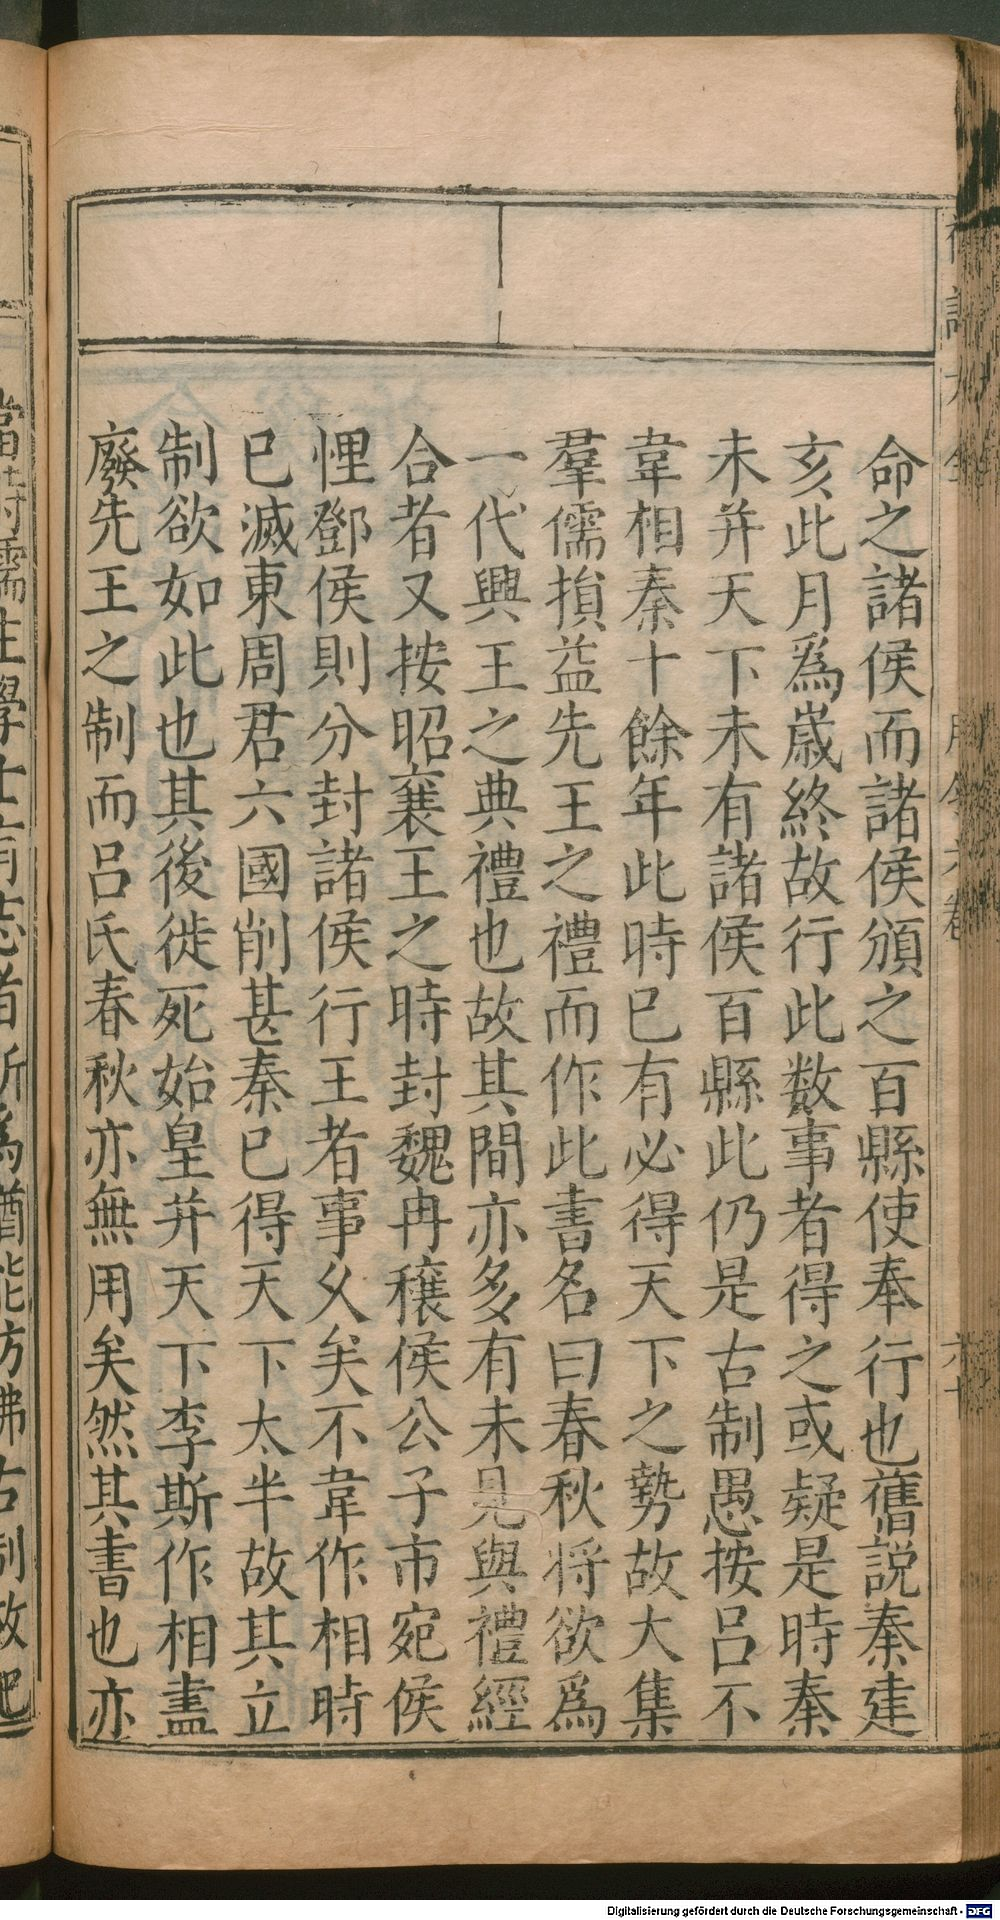 命之諸侯而諸侯頒之百縣使奉行也舊說秦建
亥此月爲歳終故行此数事者得之或疑是時秦
未并天下未有諸侯百縣此仍是古制愚按呂不
韋相秦十餘年此時已有必得天下之勢故大集
羣儒損益先王之禮而作此書名曰春秋将欲爲
一代興王之典禮也故其間亦多有未見與禮經
合者又按昭襄王之時封魏冉穰侯公子巿宛侯
悝鄧侯則分封諸侯行王者事乆矣不韋作相時
已滅東周君六國削甚秦已得天下太半故其立
制欲如此也其後徙死始皇并天下李斯作相盡
廢先王之制而呂氏春秋亦無用矣然其書也亦
當時儒生學士有志者所爲猶能方彿古制故
Digitalisierung gefördert durch die Deutsche Forschungsgemeinschaft - DFG